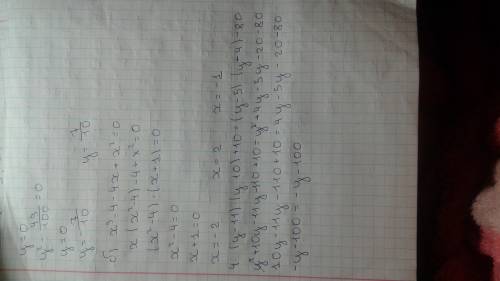 y=0
y² - 49/100 = 0
y=0
y=-7/10   y=7/10
б) x³-4-4x+x²=0
x(x²-4)-4+x²=0
(x²-4)·(x+1)=0
x²-4=0
x+1=0
x=-2   x=2   x=-1
4 (y-11)(y+10)+10=(y-5)(y+4)-80
y²+10y-11y-110+10=y²+4y-5y-20-80
10y-11y-110+10=4y-5y-20-80
-y-100=-y-100